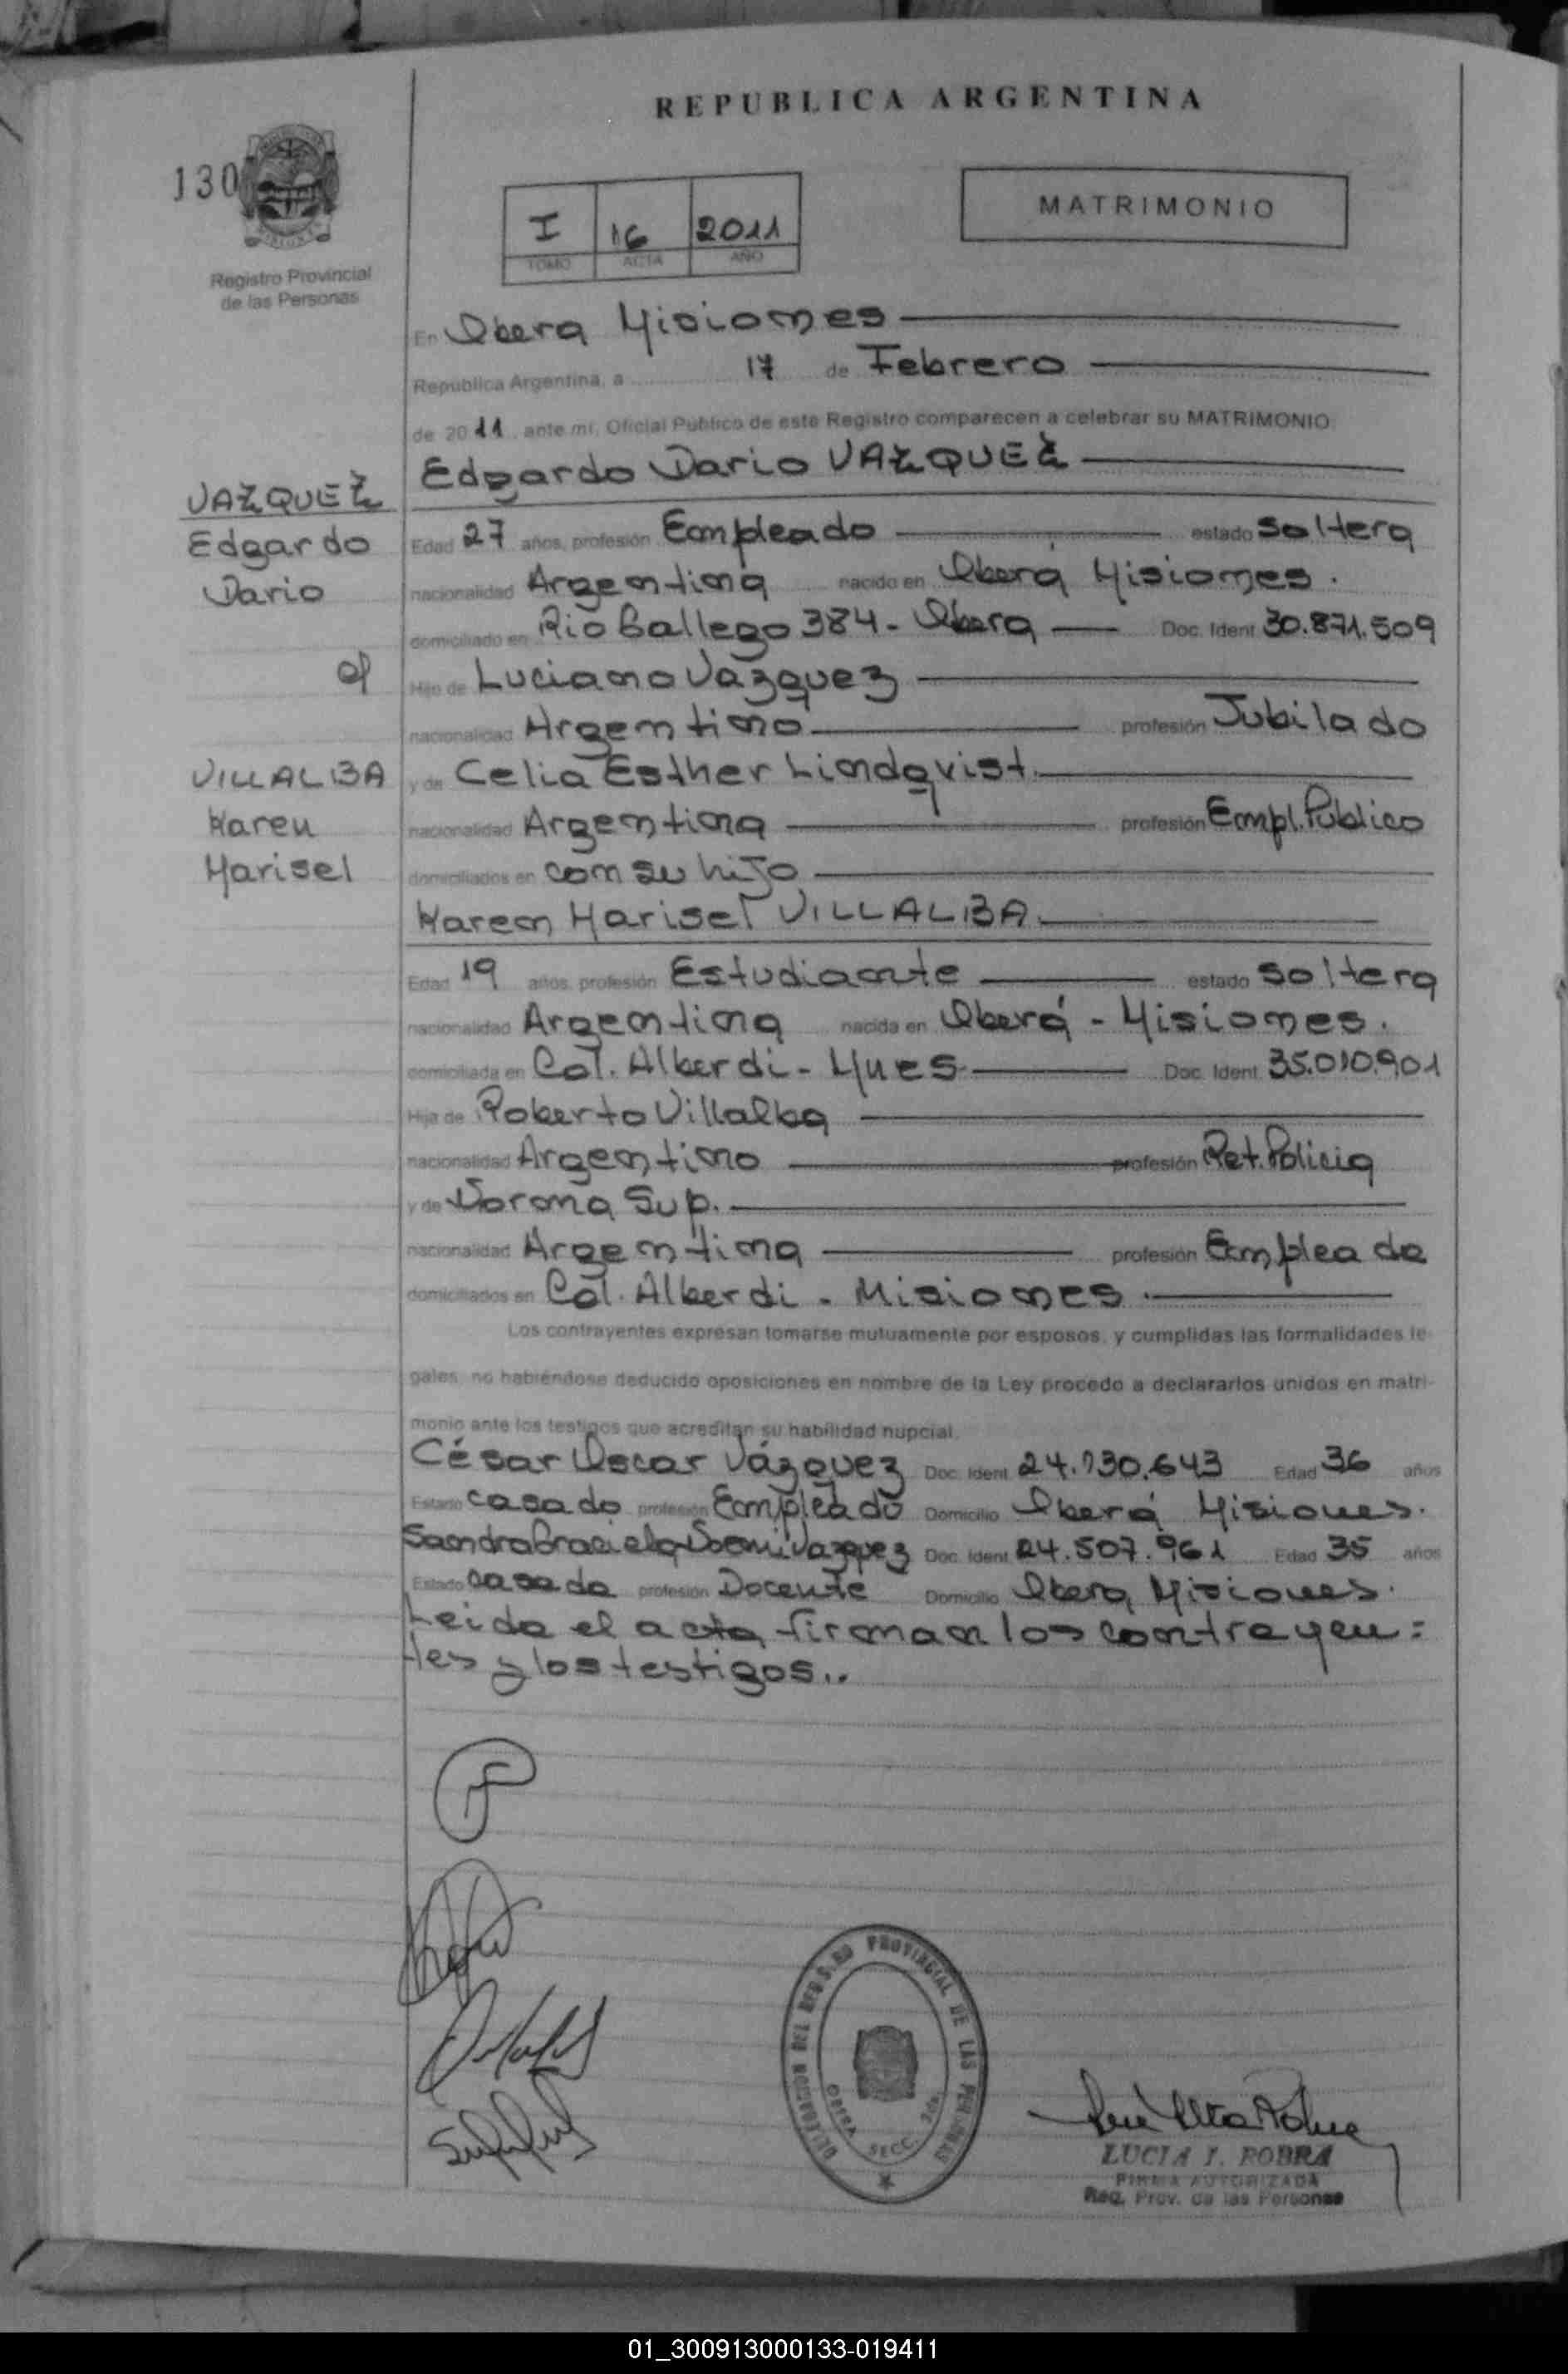 REPUBLICA ARGENTINA
130
Registro Provincial
de las Personas
I 16 2011
TOMO ACTA AÑO
MATRIMONIO
En Obera Misiones
República Argentina, a 17 de Febrero
de 2011, ante mí, Oficial Público de este Registro comparecen a celebrar su MATRIMONIO:
Edgardo Dario VAZQUEZ
VAZQUEZ
Edgardo
Dario
c/
VILLALBA
Karen
Marisel
Edad 27 años, profesión Empleado estado Soltera
nacionalidad Argentina nacido en Oberá Misiones.
domiciliado en Rio Gallego 384 - Obera Doc. Ident. 30.871.509
Hijo de Luciano Vazquez
nacionalidad Argentino profesión Jubilado
y de Celia Esther Lindqvist.
nacionalidad Argentina profesión Empl. Publico
domiciliados en con su hijo
Karen Marisel VILLALBA.
Edad 19 años, profesión Estudiante estado Soltera
nacionalidad Argentina nacida en Oberá - Misiones.
domiciliada en Col. Alberdi - Mnes Doc. Ident. 35.010.901
Hija de Roberto Villalba
nacionalidad Argentino profesión Ret. Policia
y de Norma Sup.
nacionalidad Argentina profesión Empleada
domiciliados en Col. Alberdi - Misiones.
Los contrayentes expresan tomarse mutuamente por esposos, y cumplidas las formalidades le-
gales, no habiéndose deducido oposiciones en nombre de la Ley procedo a declararlos unidos en matri-
monio ante los testigos que acreditan su habilidad nupcial.
César Oscar Vázquez Doc. Ident. 24.130.643 Edad 36 años
Estado Casado profesión Empleado Domicilio Oberá Misiones.
Sandra Graciela Noemi Vazquez Doc. Ident. 24.507.961 Edad 35 años
Estado Casada profesión Docente Domicilio Obera Misiones.
Leida el acta firman los contrayen=
tes y los testigos..
DELEGACION DEL REGISTRO PROVINCIAL DE LAS PERSONAS
OBERA SECC. 2da.
LUCIA I. ROBRA
FIRMA AUTORIZADA
Reg. Prov. de las Personas
01_300913000133-019411